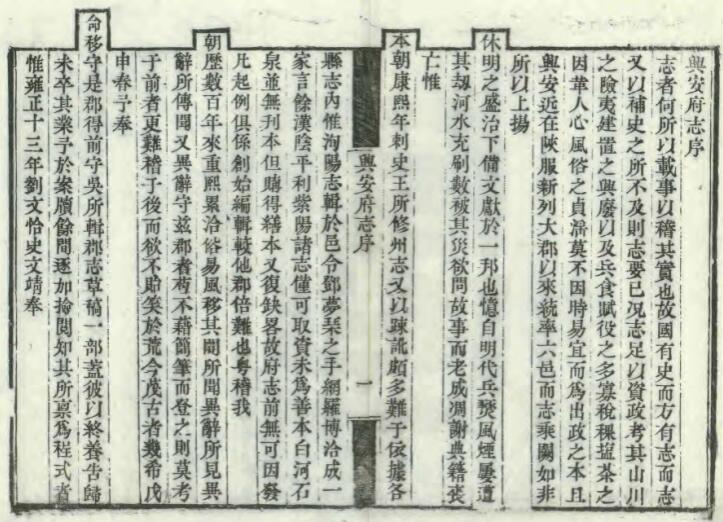 興安府志序
志者何所以載事以稽其實也故國有史而方有志而志
又以補史之所不及則志要已况志足以資政考其山川
之險夷建置之興廢以及兵食賦役之多寡稅稞塩茶之
因革人心風俗之貞滛莫不因時易宜而為出政之本且
興安近在陜服新列大郡以來統率六邑而志乘闕如非
所以上揚
休明之盛治下備文獻於一邦也憶自明代兵燹風煙屢遭
其刼河水充刷數被其災欲問故事而老成凋謝典籍喪
亡惟
本朝康熙年刺史王所修州志又以踈訛頗多難于依據各
興安府志序
一
縣志內惟洵陽志輯於邑令鄧夢琴之手網羅博洽成一
家言餘漢陰平利紫陽諸志僅可取資未為善本白河石
泉並無刋本但購得繕本又復缺畧故府志前無可因發
凡起例俱係創始編輯較他郡倍難也粤稽我
朝歷數百年來重熙累洽俗易風移其間所聞異辭所見異
辭所傳聞又異辭守兹郡者苟不藉簡筆而登之則莫考
于前者更難稽于後而欲不貽笑於荒今茂古者幾希戊
申春予奉
命移守是郡得前守吳所輯郡志草稿一部葢彼以終養告歸
未卒其業予於案牘餘間逐加搶閱知其所禀為程式者
惟雍正十三年劉文恪史文靖奉